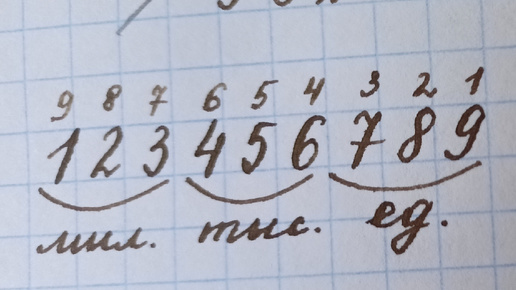 9 8 7 6 5 4 3 2 1
123 456 789
мил. тыс. ед.